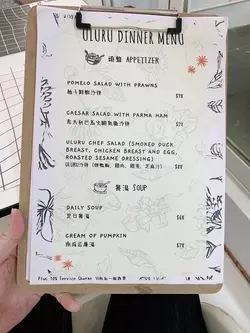 ULURU DINNER MENU
頭盤 APPETIZER
POMELO SALAD WITH PRAWNS
柚子鮮蝦沙律 $78
CAESAR SALAD WITH PARMA HAM
$78
ULURU CHEF SALAD (SMOKED DUCK
BREAST, CHICKEN BREAST AND EGG,
ROASTED SESAME DRESSING)
$78
餐湯 SOUP
DAILY SOUP
是日餐湯 $68
CREAM OF PUMPKIN
南瓜忌廉湯 $78
Plus 10% Service Charge